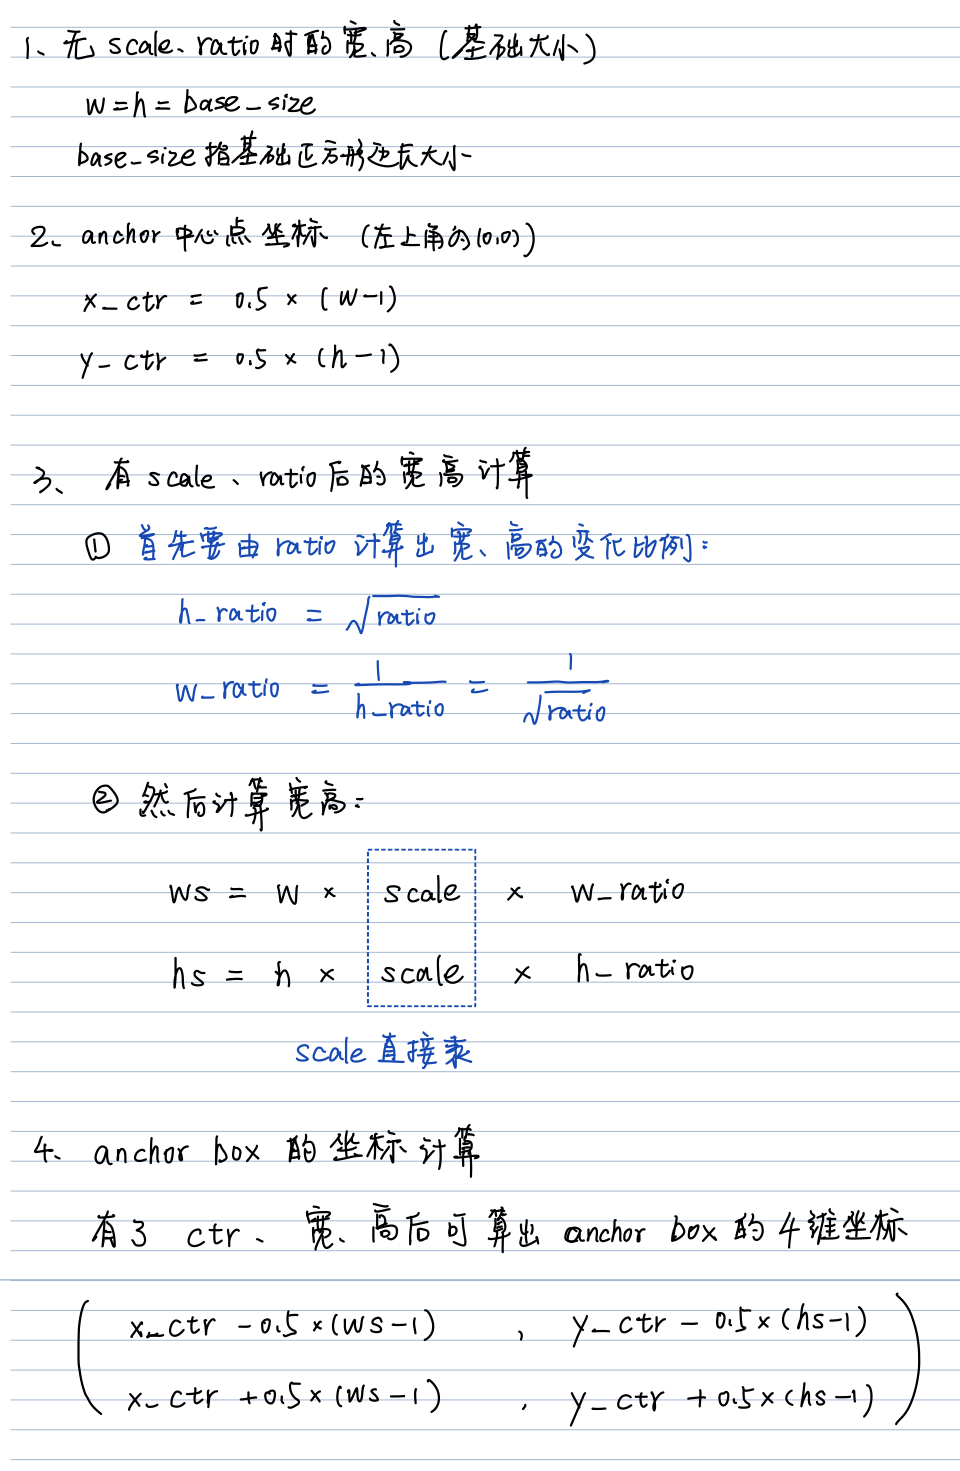 1、无 scale、ratio 时的宽、高 (基础大小)
w = h = base_size
base_size 指基础正方形边长大小
2、anchor 中心点坐标 (左上角为(0,0))
x_ctr = 0.5 × (w-1)
y_ctr = 0.5 × (h-1)
3、有 scale、ratio 后的宽高计算
① 首先要由 ratio 计算出宽、高的变化比例:
h_ratio = √ratio
w_ratio = 1/h_ratio = 1/√ratio
② 然后计算宽高:
ws = w × scale × w_ratio
hs = h × scale × h_ratio
scale 直接乘
4、anchor box 的坐标计算
有了 ctr、宽、高后可算出 anchor box 的 4 维坐标
( x_ctr - 0.5 × (ws-1) , y_ctr - 0.5 × (hs-1)
x_ctr + 0.5 × (ws-1) , y_ctr + 0.5 × (hs-1) )